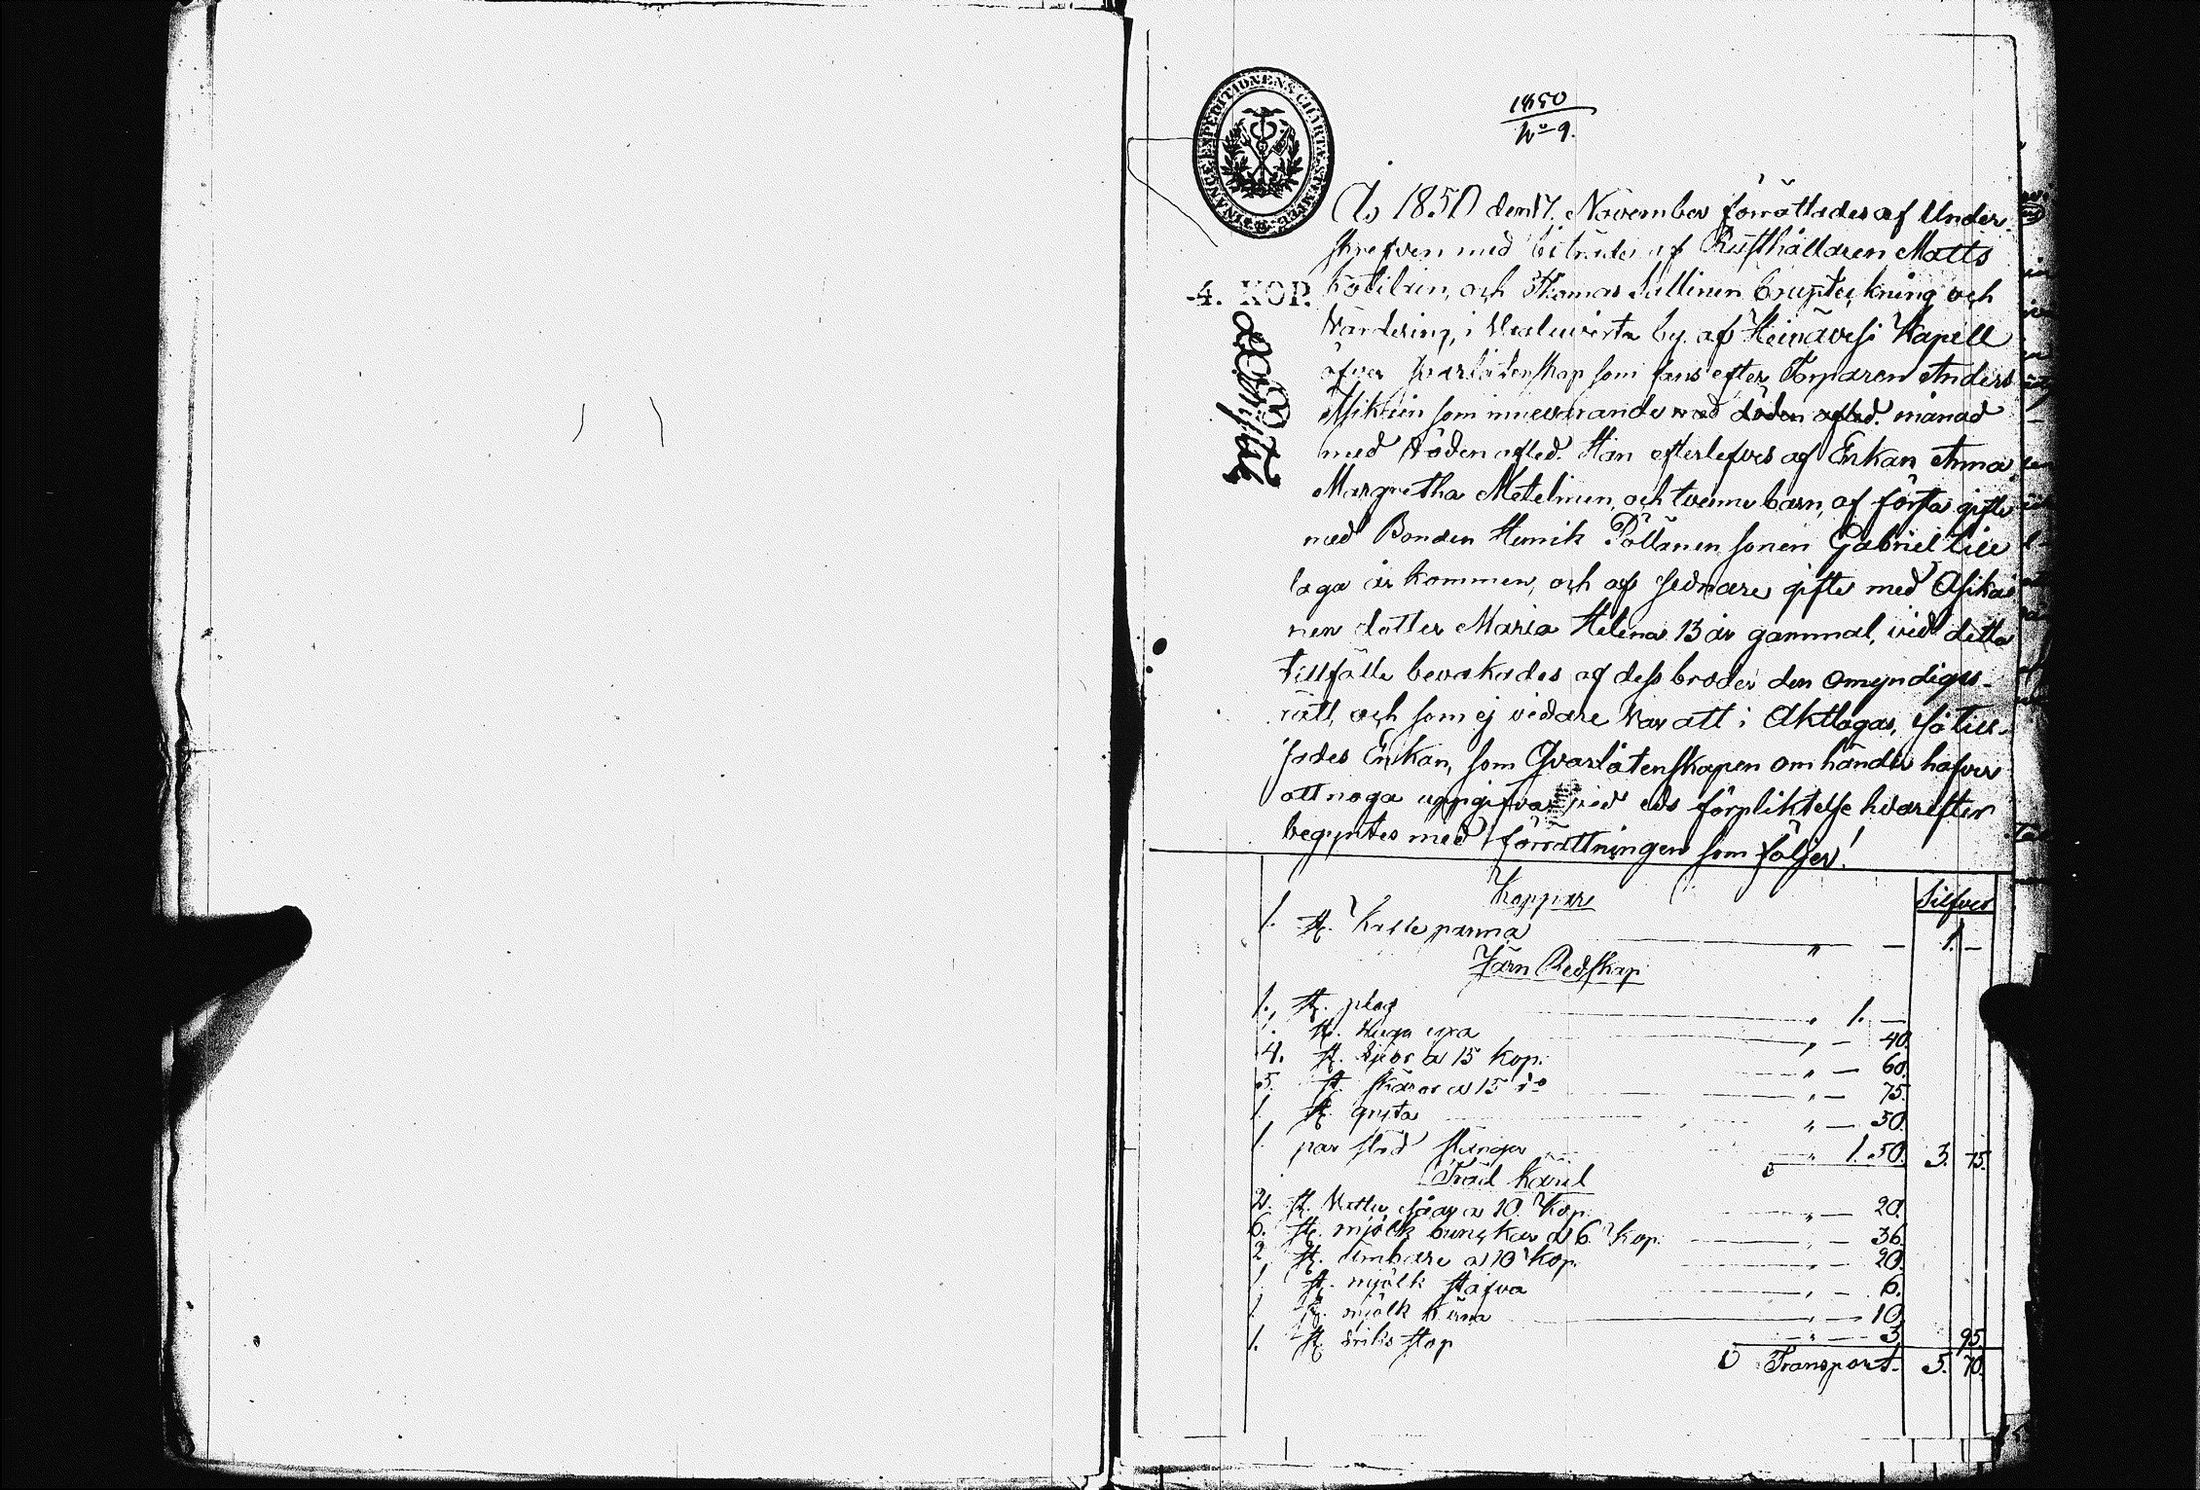 FINANCE-EXPEDITIONENS CHARTÆ STÄMPEL
1850
No 9.
År 1850 den 17. November förrättades af Under-
skrefven med biträde af Rusthållaren Matts
4. KOP. och Thomas Sallinen bouptekning och
Värdering, i by af Heinävesi Kapell
öfver qvarlåtenskap som fans efter Torparen Anders
Asikain som innevarande med döden afled. månad
med döden afled. Han efterlefves af Enkan Anna
Margretha Metelinen, och tvenne barn, af första gifte
med Bonden Henrik Pöllänen sonen Gabriel till
laga år kommen, och af sednare gifte med Asikai
nen dotter Maria Helena 13 år gammal, vid detta
tillfälle bevakades af dess broder den omyndiges
rätt, och som ej vidare var att i Akttagas, så till-
sades Enkan, som Qvarlåtenskapen om händer hafver
att noga uppgifva vid eds förpliktelse hvarefter
begyntes med förrättningen som följer!
Koppar
Silfver
1. st. Kaffe panna " — 1. —
Järn Redskap
1. st. plog " 1. —
1. st. yxa " — 40.
4. st. a 15 Kop. " — 60.
5. st. skäror a 15 do " — 75.
1. st. gryta " — 50.
1. par stänger " 1. 50. 3. 75.
Träd Käril
2. st. Vatten såar a 10. Kop. " — 20.
6. st. mjölk bunkar a 6. Kop. " — 36.
2. st. ämbare a 10 Kop. " — 20.
1. st. mjölk stäfva " — 6.
1. st. mjölk kärna " — 10.
1. st. driks stop " — 3. 95.
Transport. 5. 70.